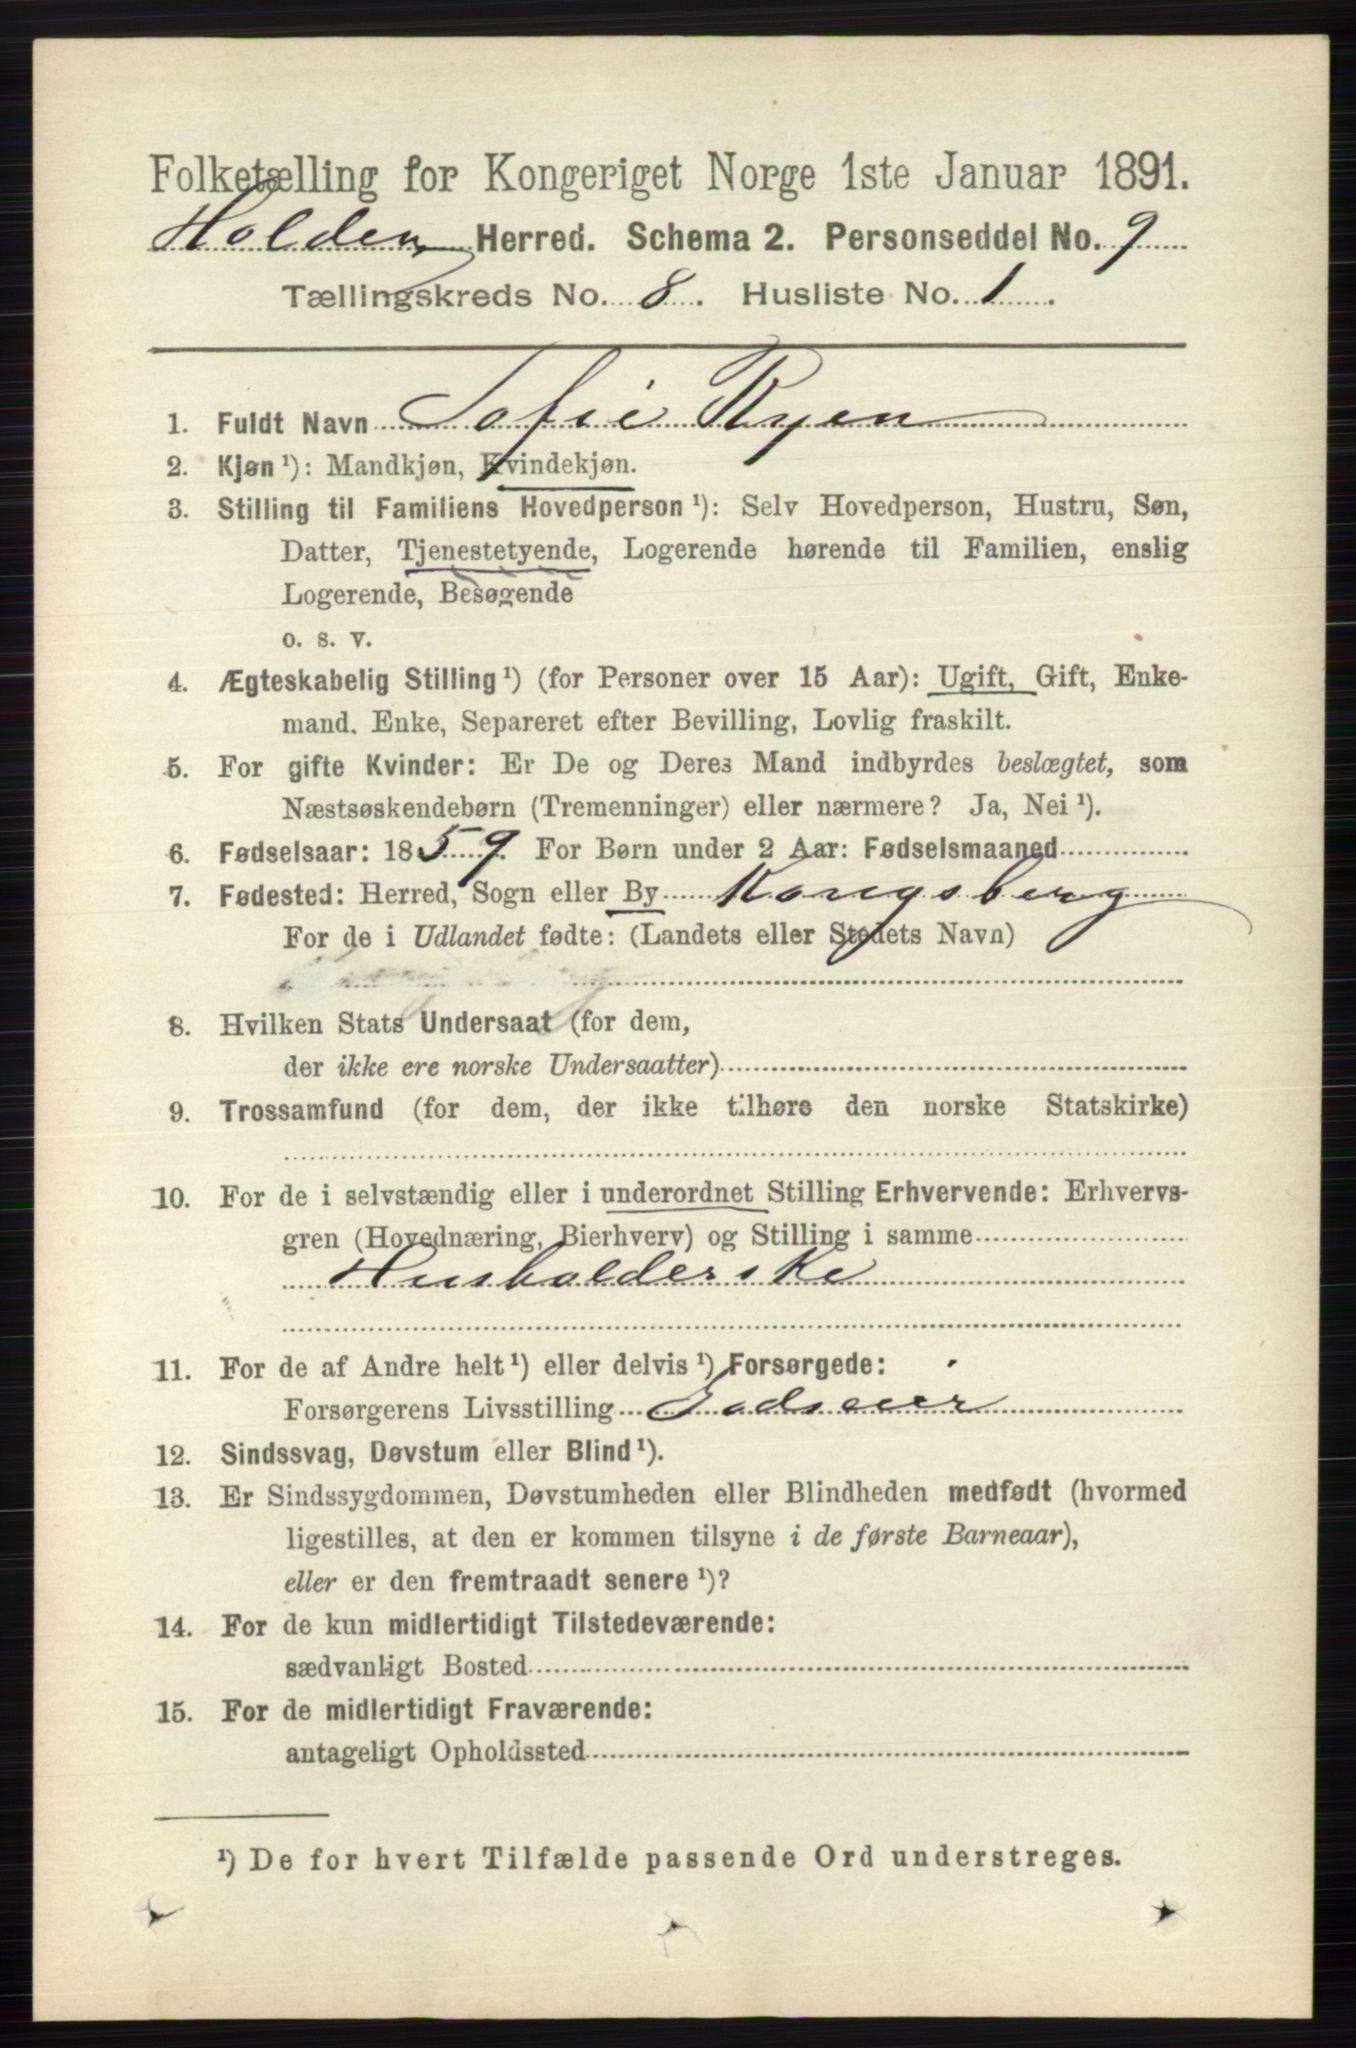 Folketælling for Kongeriget Norge 1ste Januar 1891.
Holden Herred. Schema 2. Personseddel No. 9
Tællingskreds No. 8. Husliste No. 1.
1. Fuldt Navn Sofie Ryen
2. Kjøn ¹): Mandkjøn, Kvindekjøn.
3. Stilling til Familiens Hovedperson ¹): Selv Hovedperson, Hustru, Søn,
Datter, Tjenestetyende, Logerende hørende til Familien, enslig
Logerende, Besøgende
o. s. v.
4. Ægteskabelig Stilling ¹) (for Personer over 15 Aar): Ugift, Gift, Enke-
mand, Enke, Separeret efter Bevilling, Lovlig fraskilt.
5. For gifte Kvinder: Er De og Deres Mand indbyrdes beslægtet, som
Næstsøskendebørn (Tremenninger) eller nærmere? Ja, Nei ¹).
6. Fødselsaar: 1859. For Børn under 2 Aar: Fødselsmaaned
7. Fødested: Herred, Sogn eller By Kongsberg
For de i Udlandet fødte: (Landets eller Stedets Navn)
8. Hvilken Stats Undersaat (for dem,
der ikke ere norske Undersaatter)
9. Trossamfund (for dem, der ikke tilhøre den norske Statskirke)
10. For de i selvstændig eller i underordnet Stilling Erhvervende: Erhvervs-
gren (Hovednæring, Bierhverv) og Stilling i samme
Husholderske
11. For de af Andre helt ¹) eller delvis ¹) Forsørgede:
Forsørgerens Livsstilling Godseier
12. Sindssvag, Døvstum eller Blind ¹).
13. Er Sindssygdommen, Døvstumheden eller Blindheden medfødt (hvormed
ligestilles, at den er kommen tilsyne i de første Barneaar),
eller er den fremtraadt senere ¹)?
14. For de kun midlertidigt Tilstedeværende:
sædvanligt Bosted
15. For de midlertidigt Fraværende:
antageligt Opholdssted
¹) De for hvert Tilfælde passende Ord understreges.